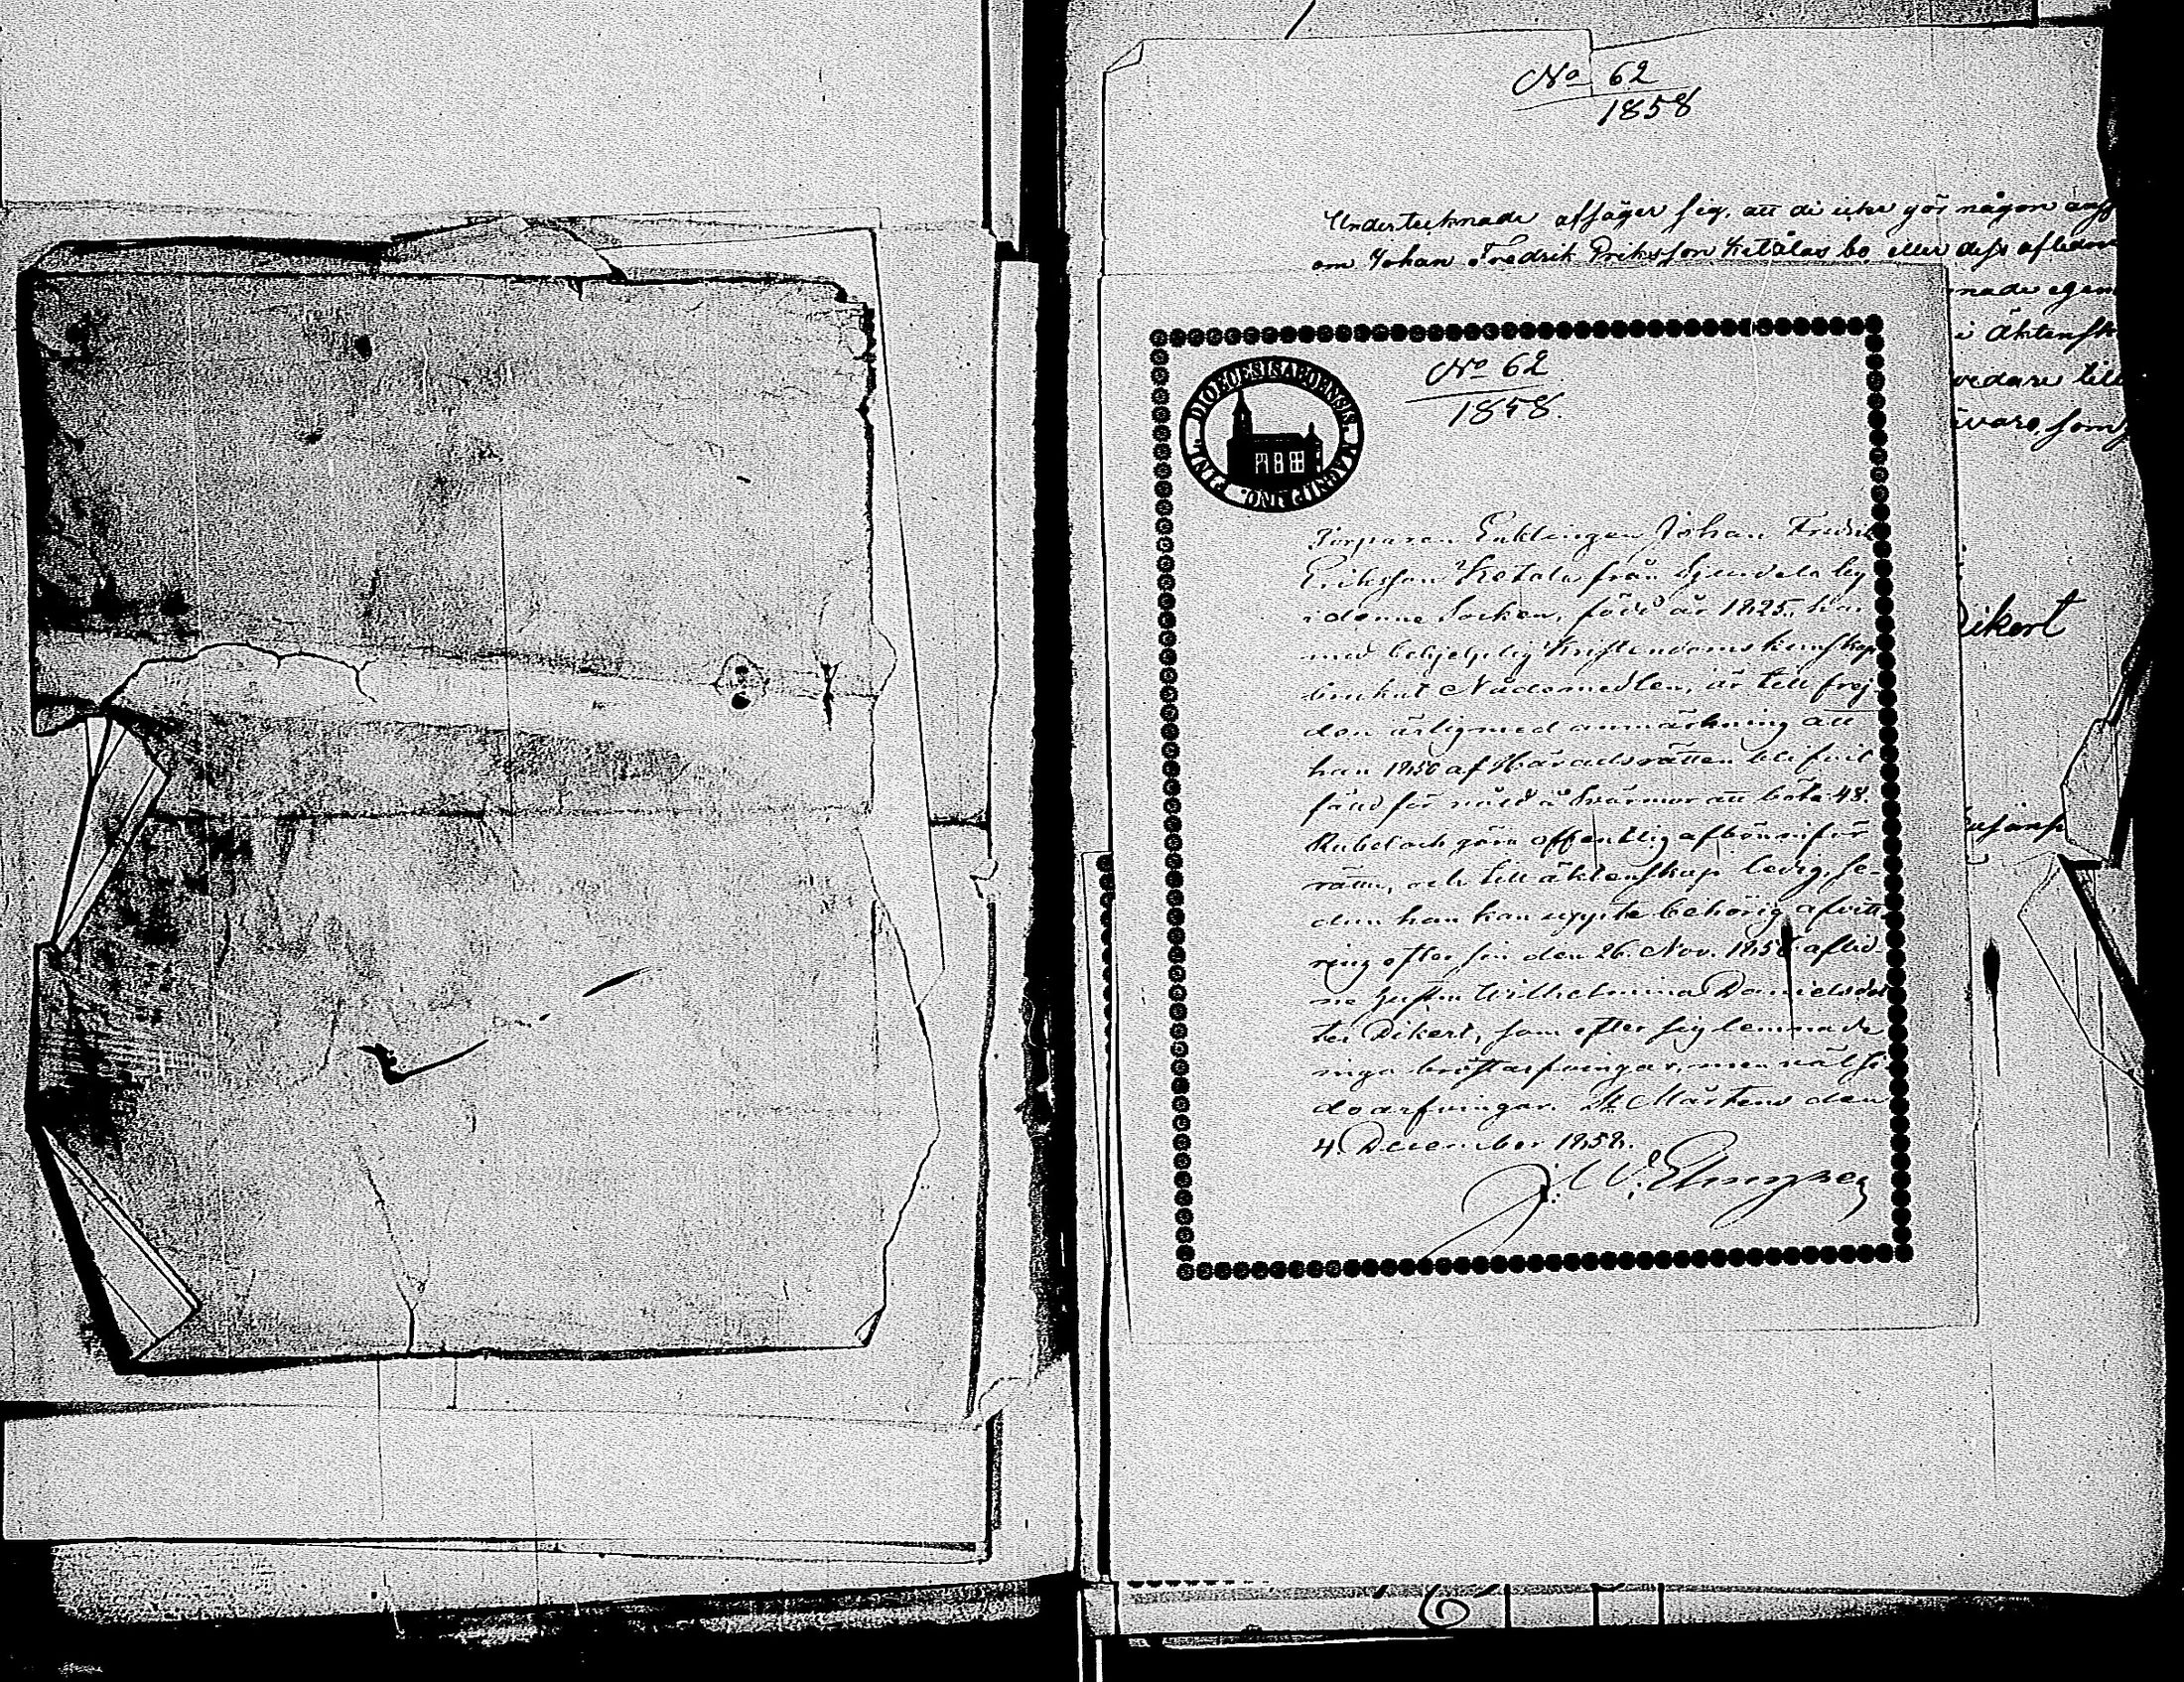 No 62
1858
Undertecknade afsäger sig, att de icke gör någon
om Johan Fredrik Eriksson Ketalas bo eller dess
nade egen
i Äktensk
vedare till
som
No 62
1858.
DIOECESIS ABOENSIS. MAGNI P. INC. FINL.
Torparen Enklingen Johan Fredrik
Eriksson Ketala från
i denne Socken, född år 1825, har
med behjelplig Kristendoms kunskap
brukat Nådemedlen, är till frej
den ärlig med anmärkning att
han 1850 af Häradsrätten blifvit
fäld för våld å Svärmor att böta 48.
Rubel och göra offentlig afbön inför
rätta, och till äktenskap ledig, se-
dan han kan uppte behörig afvitt-
ring efter sin den 26. Nov. 1856 aflid
ne hustru Wilhelmina Danielsdot
ter Dikert, som efter sig lemnade
inga bröstarfvingar, men
do arfvingar. St Mårtens den
4. December 1858.
Dikert